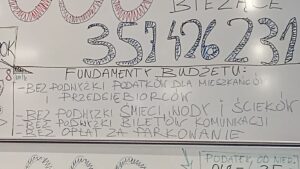 BIEŻĄCE
OK
357426231
FUNDAMENTY BUDŻETU:
-BEZ PODWYŻKI PODATKÓW DLA MIESZKAŃCÓW
I PRZEDSIĘBIORCÓW
-BEZ PODWYŻKI ŚMIECI, WODY I ŚCIEKÓW
-BEZ PODWYŻKI BILETÓW KOMUNIKACJI
-BEZ OPŁAT ZA PARKOWANIE
PODATEK, CO NIEDZ